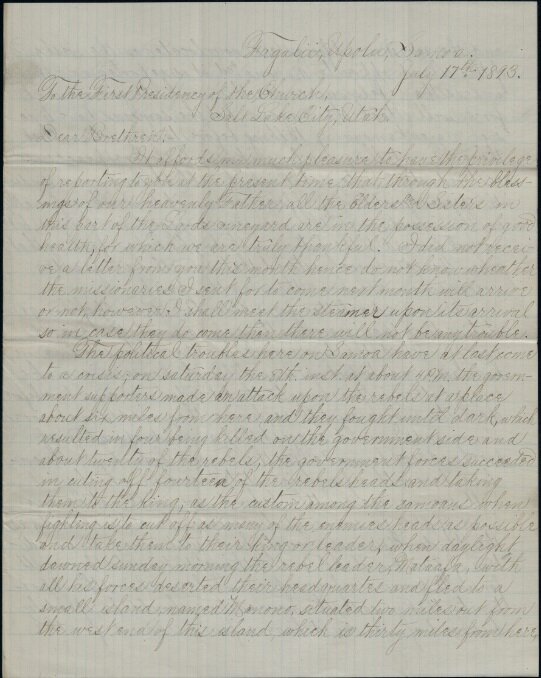 Fagalii, Upolu, Samoa.
July 17th 1893.
To the First Presidency of the Church.
Salt Lake City, Utah.
Dear Brethren:
It affords me much pleasure to have the privilege
of reporting to you at the present time, that through the bless-
ings of our heavenly Father all the Elders & Sisters in
this part of the Lords vineyard are in the possession of good
health, for which we are truly thankful. I did not recei-
ve a letter from you this month hence do not know wheather
the missionaries I sent for to come next month will arrive
or not, however I shall meet the steamer upon its arrival
so in case they do come then there will not be any trouble.
The political troubles here on Samoa have at last come
to a crisis; on saturday the 8th. inst. at about 4 P.M. the govern-
ment supporters made an attack upon the rebels at a place
about six miles from here and they fought until dark, which
resulted in four being killed on the government side and
about twenty of the rebels, the government forces succeeded
in cuting off fourteen of the rebels heads and taking
them to the king, as the custom among the samoans when
fighting is to cut off as many of the enemies heads as possible
and take them to their king or leader, when daylight
dawned sunday morning the rebel leader, Mataafa, with
all his forces deserted their headquartes and fled to a
small island named Monono, situated two miles out from
the west end of this island which is thirty miles from here,